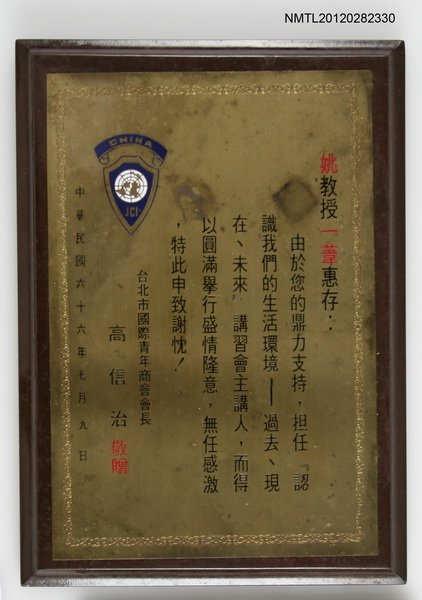 NMTL20120282330
CHINA
JCI
姚教授一葦惠存：
由於您的鼎力支持，担任『認
識我們的生活環境—過去、現
在、未來』講習會主講人，而得
以圓滿舉行盛情隆意，無任感激
，特此申致謝忱！
台北市國際青年商會會長
高信治敬贈
中華民國六十六年七月九日